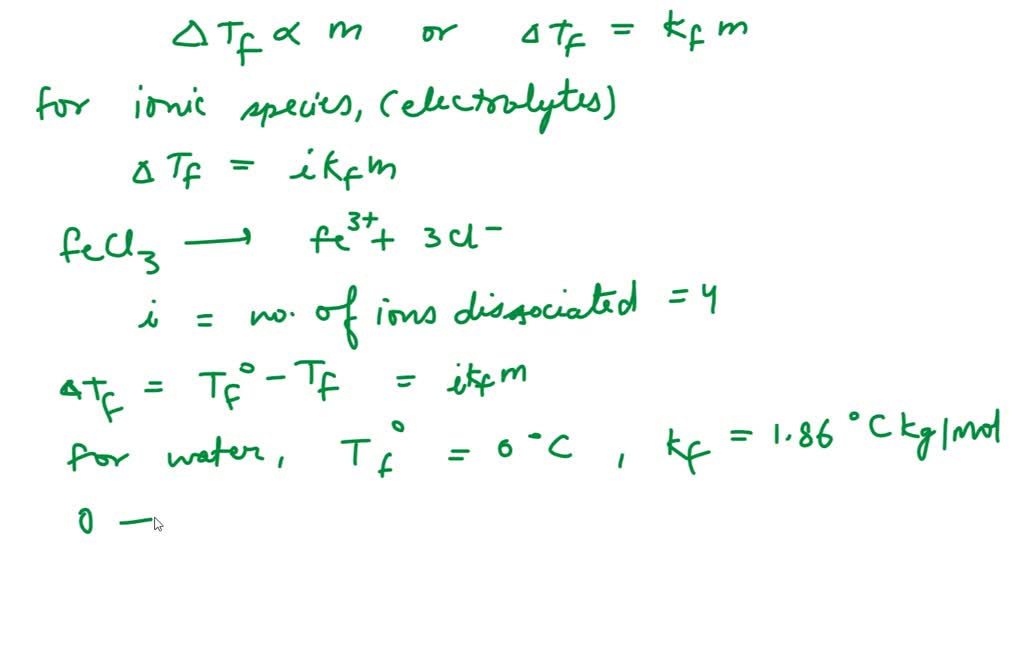 Δ Tf ∝ m or Δ Tf = kf m
for ionic species, (electrolytes)
Δ Tf = i kf m
feCl3 ⟶ fe³⁺ + 3Cl⁻
i = no. of ions dissociated = 4
ΔTf = Tf° - Tf = ikfm
for water, Tf° = 0 °C , kf = 1.86 °C kg/mol
0 —